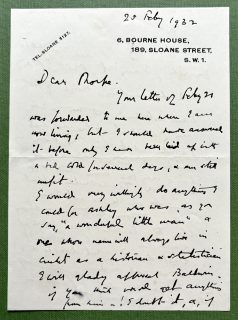 25 Feby 1932
TEL. SLOANE 5137.
6, BOURNE HOUSE,
189, SLOANE STREET,
S.W.1.
Dear Thorpe.
Your letter of Feby 21
was forwarded to me here where I am
now living, but I should have answered
it before only I have been laid up with
a bad cold for several days, & am still
unfit.
I would very willingly do anything I
could for Ashley who was, as you
say, "a wonderful little man" &
one whose name will always live in
cricket as a historian & statistician
I will gladly approach Baldwin
if you think would get anything
from him — I doubt it, &, if